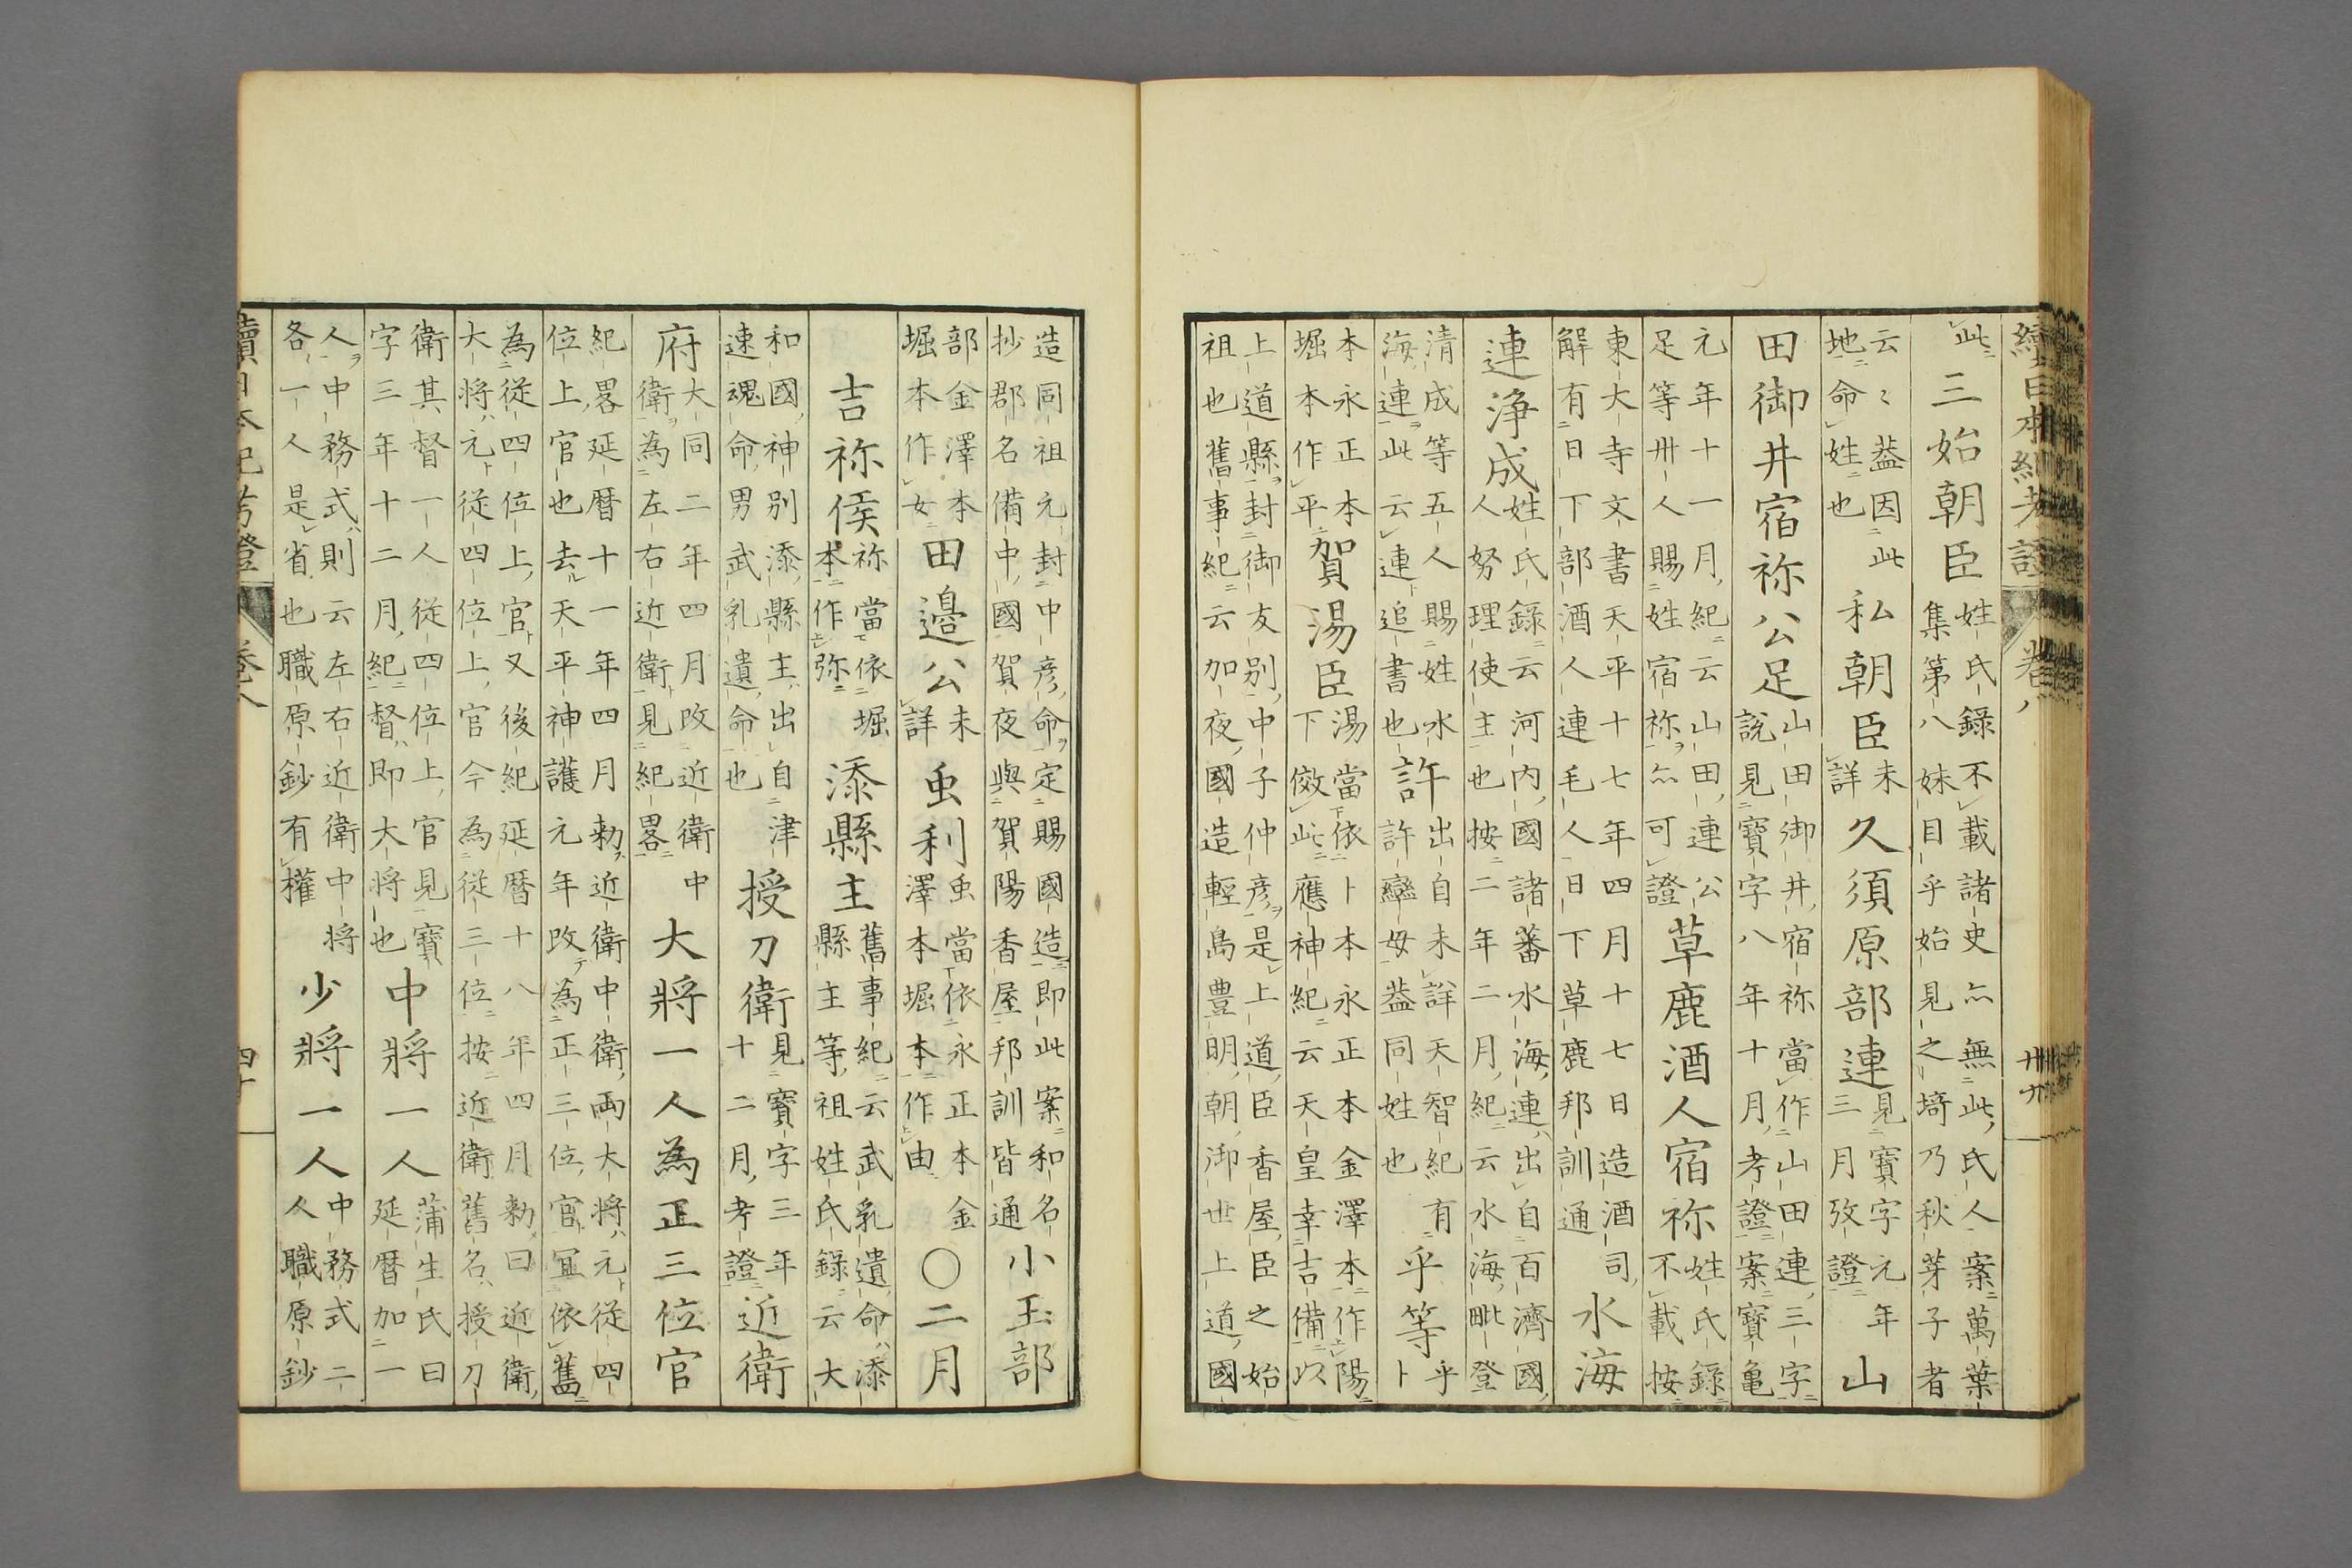 續日本紀考證 卷八 卅九
此三始朝臣姓氏錄不載諸史亦無此氏人案萬葉
集第八妹目乎始見之埼乃秋芽子者
云〻葢因此
地命姓也私朝臣未詳久須原部連見寶字元年三月攷證山
田御井宿祢公足山田御井宿祢當作山田連三字
說見寶字八年十月考證案寶龜
元年十一月紀云山田連公
足等卅人賜姓宿祢亦可證草鹿酒人宿祢姓氏錄不載按
東大寺文書天平十七年四月十七日造酒司
解有日下部酒人連毛人日下草鹿邦訓通水海
連淨成姓氏錄云河內國諸蕃水海連出自百濟國
人努理使主也按二年二月紀云水海毗登
清成等五人賜姓水
海連此云連追書也許出自未詳天智紀有許孌母葢同姓也乎等乎卜
本永正本
堀本作平賀湯臣湯當依卜本永正本金澤本作陽
下傚此應神紀云天皇幸吉備以
上道縣封御友別中子仲彥是上道臣香屋臣之始
祖也舊事紀云加夜國造輕島豊明朝御世上道國
造同祖元封中彥命定賜國造即此案和名
抄郡名備中國賀夜與賀陽香屋邦訓皆通小玉部
部金澤本
堀本作女田邉公未詳虫利虫當依永正本金
澤本堀本作由〇二月
吉祢侯祢當依堀
本作弥添縣主舊事紀云武乳遺命添
縣主等祖姓氏錄云大
和國神別添縣主出自津
速魂命男武乳遺命也授刀衛見寶字三年
十二月考證近衛
府大同二年四月改近衛中
衛為左右近衛見紀畧大將一人為正三位官
紀畧延曆十一年四月勅近衛中衛両大将元從四
位上官也去天平神護元年改為正三位官冝依舊
為從四位上官又後紀延曆十八年四月勅曰近衛
大将元從四位上官今為從三位按近衛舊名授刀
衛其督一人從四位上官見寶
字三年十二月紀督即大将也中將一人蒲生氏曰
延曆加一
人中務式則云左右近衛中将
各一人是省也職原鈔有權少將一人中務式二
人職原鈔
續日本紀考證 卷八 四十